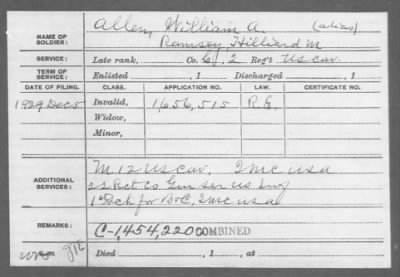 Allen, William A. (alias)
NAME OF SOLDIER: Ramsey, Hilliard M
SERVICE: Late rank, Co. G, 2 Reg't US Cav.
TERM OF SERVICE: Enlisted , 1 Discharged , 1
DATE OF FILING. CLASS. APPLICATION NO. LAW. CERTIFICATE NO.
1929 Dec 5 Invalid, 1,656,515 R.E.
Widow,
Minor,
M 12 US Cav. QMC USA
ADDITIONAL SERVICES: 22 Rct Co Gen Ser US Inf
1st Dch for B of C, QMC USA
REMARKS: C-1,454,220 COMBINED
Died , 1 , at